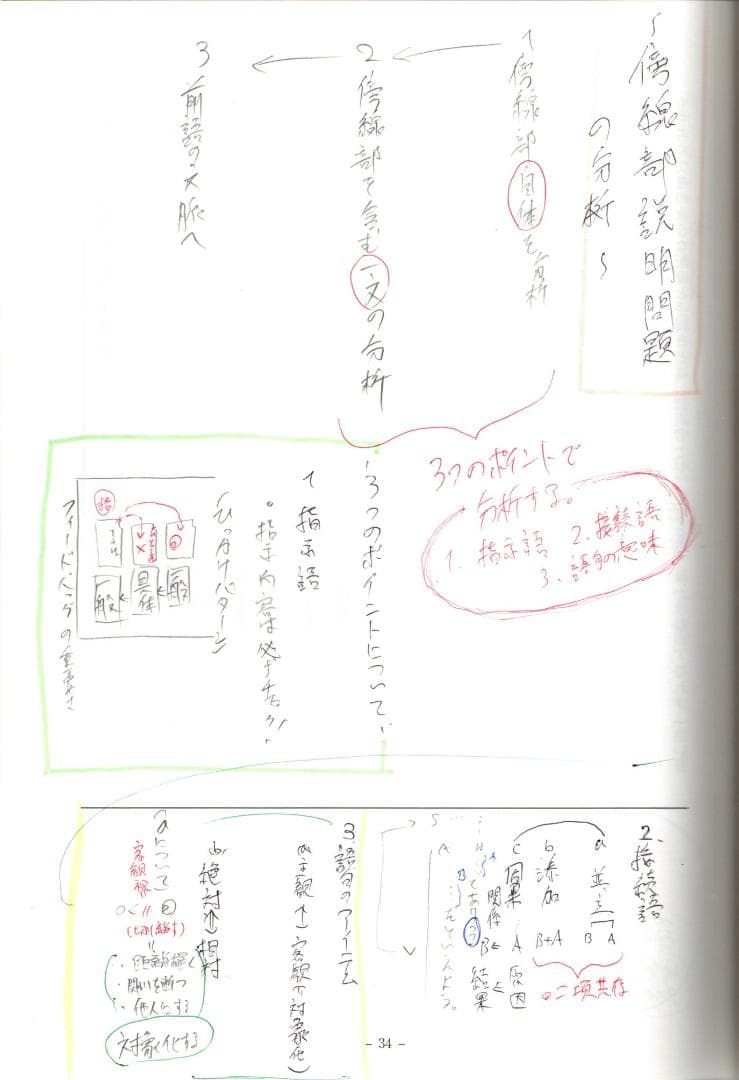 ～傍線部説明問題
の分析～
1 傍線部自体を分析
2 傍線部を含む一文の分析
3 前後の文脈へ
3つのポイントで
分析する。
1. 指示語
2. 接続語
3. 語句の意味
、3つのポイントについて、
1 指示語
・指示内容は必チェック!
(ひっかけパターン)
指
一般
具体
一般
フィードバックの重要さ
2. 接続語
a 並立
A
B
b 添加
B+A
○二項共存
c 因果
A 原因
関係
B 結果
A
B
3. 語句のアイテム
a 主観↑↓客観(対象化)
b 絶対↑↓相対
aについて
客観視
(切り離す)
・距離を置く
・関わりを断つ
・他人にする
対象化する
- 34 -